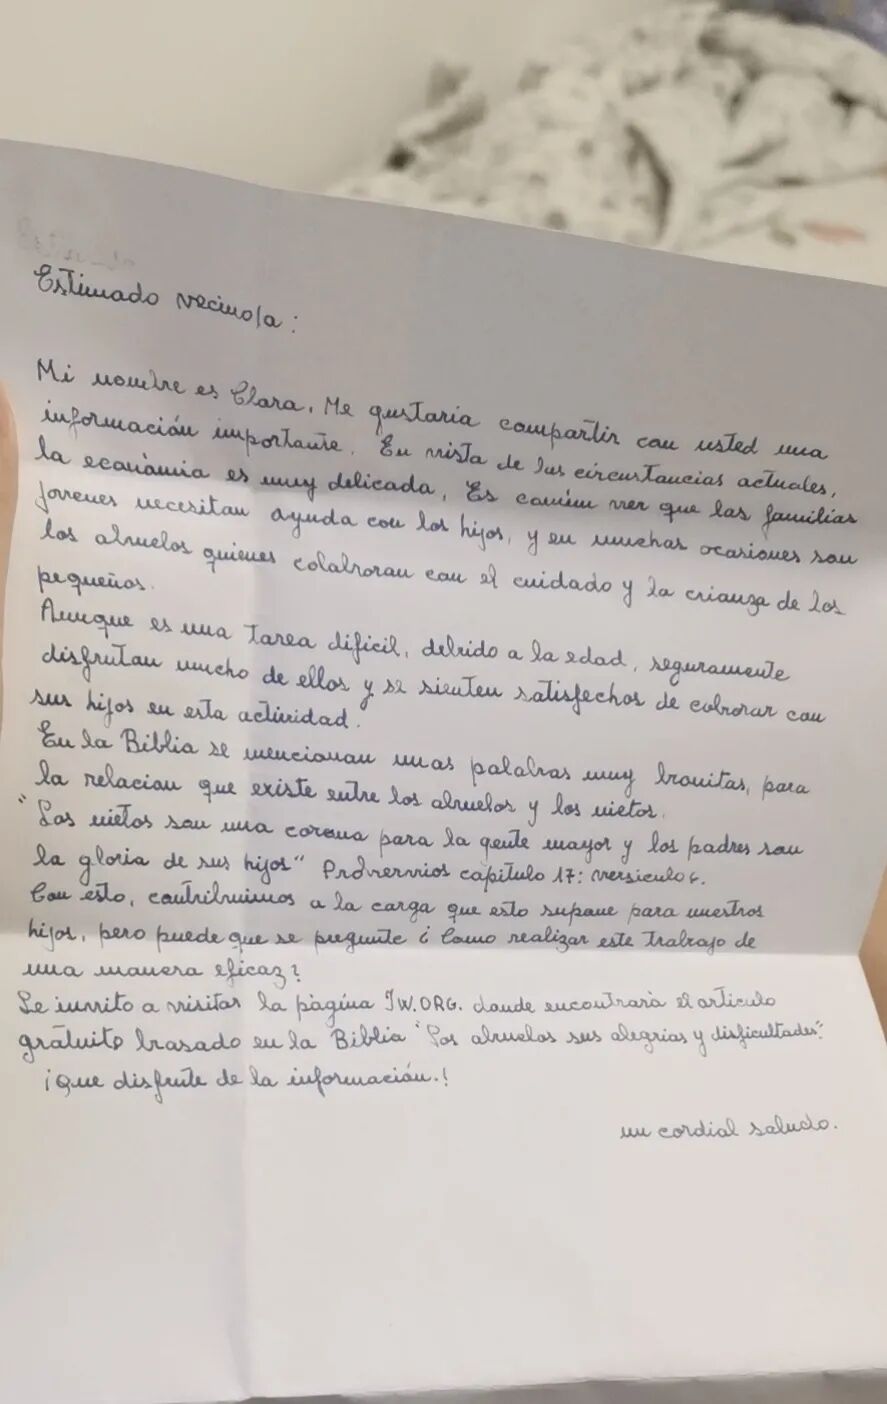 Estimado vecino/a:
Mi nombre es Clara. Me gustaria compartir con usted una
información importante. En vista de las circustancias actuales,
la económia es muy delicada. Es común ver que las familias
jovenes necesitan ayuda con los hijos, y en muchas ocasiones son
los abuelos quienes colaboran con el cuidado y la crianza de los
pequeños.
Aunque es una tarea dificil, debido a la edad, seguramente
disfrutan mucho de ellos y se sienten satisfechos de cobrorar con
sus hijos en esta actividad.
En la Biblia se mencionan unas palabras muy bonitas, para
la relacion que existe entre los abuelos y los nietos.
"Los nietos son una corona para la gente mayor y los padres son
la gloria de sus hijos" Proververvios capitulo 17: versiculo 6.
Con esto, contribuimos a la carga que esto supone para nuestros
hijos, pero puede que se pregunte ¿Como realizar este trabajo de
una manera eficaz?
Le invito a visitar la página JW.ORG. donde encontrará el articulo
gratuito basado en la Biblia "Los abuelos sus alegrias y disficultades".
¡Que disfrute de la información.!
un cordial saludo.